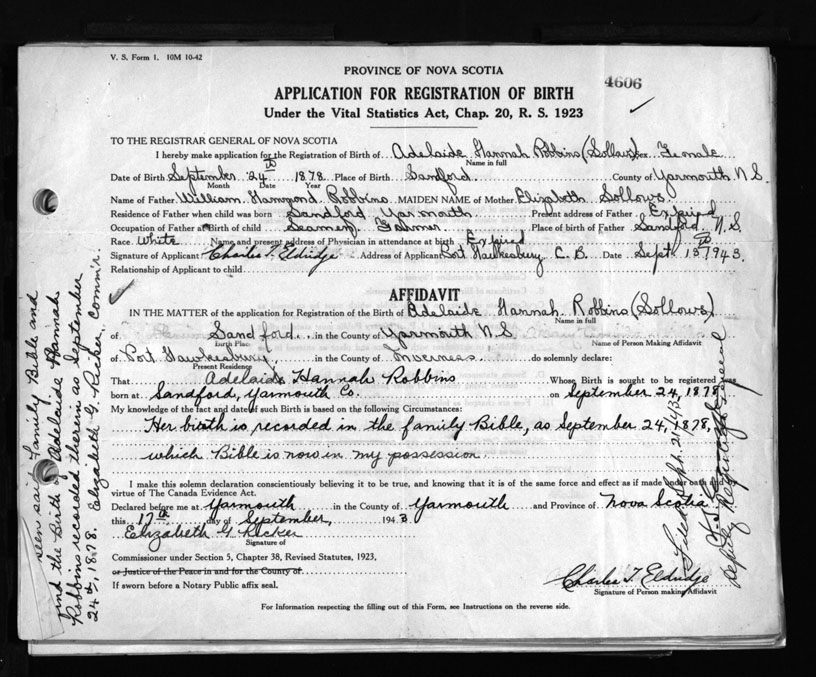 V. S. Form 1. 10M 10-42
PROVINCE OF NOVA SCOTIA
4606
APPLICATION FOR REGISTRATION OF BIRTH
Under the Vital Statistics Act, Chap. 20, R. S. 1923
TO THE REGISTRAR GENERAL OF NOVA SCOTIA
I hereby make application for the Registration of Birth of Adelaide Hannah Robbins (Sollows) Sex Female
Name in full
Date of Birth September 24th 1878 Place of Birth Sandford. County of Yarmouth N.S.
Month Date Year
Name of Father William Hammond Robbins MAIDEN NAME of Mother Elizabeth Sollows
Residence of Father when child was born Sandford Yarmouth Present address of Father Expired
Occupation of Father at Birth of child Seaman, Present Place of birth of Father Sandford, N.S.
Race White Name and present address of Physician in attendance at birth Expired
Signature of Applicant Charles T. Eldridge Address of Applicant Port Hawkesbury C. B. Date Sept. 1943.
Relationship of Applicant to child
AFFIDAVIT
IN THE MATTER of the application for Registration of the Birth of Adelaide Hannah Robbins (Sollows)
Name in full
of Sandford. in the County of Yarmouth N.S.
Birth Place Name of Person Making Affidavit
of Port Hawkesbury in the County of Inverness do solemnly declare:
Present Residence
That Adelaide Hannah Robbins Whose Birth is sought to be registered was
born at Sandford, Yarmouth Co. on September 24, 1878
My knowledge of the fact and date of such Birth is based on the following Circumstances:
Her birth is recorded in the family Bible, as September 24, 1878,
which Bible is now in my possession.
I make this solemn declaration conscientiously believing it to be true, and knowing that it is of the same force and effect as if made under oath and
virtue of The Canada Evidence Act.
Declared before me at Yarmouth in the County of Yarmouth and Province of Nova Scotia
this 17th day of September, 1943
Elizabeth G Ricker
Signature of
Commissioner under Section 5, Chapter 38, Revised Statutes, 1923,
or Justice of the Peace in and for the County of
If sworn before a Notary Public affix seal.
Charles T. Eldridge
Signature of Person making Affidavit
For Information respecting the filling out of this Form, see Instructions on the reverse side.
seen said family Bible and
find the Birth of Adelaide Hannah
Robbins recorded therein as September
24th, 1878. Elizabeth G. Ricker. Comm'r.
Filed Sept. 21/43
Deputy Registrar General